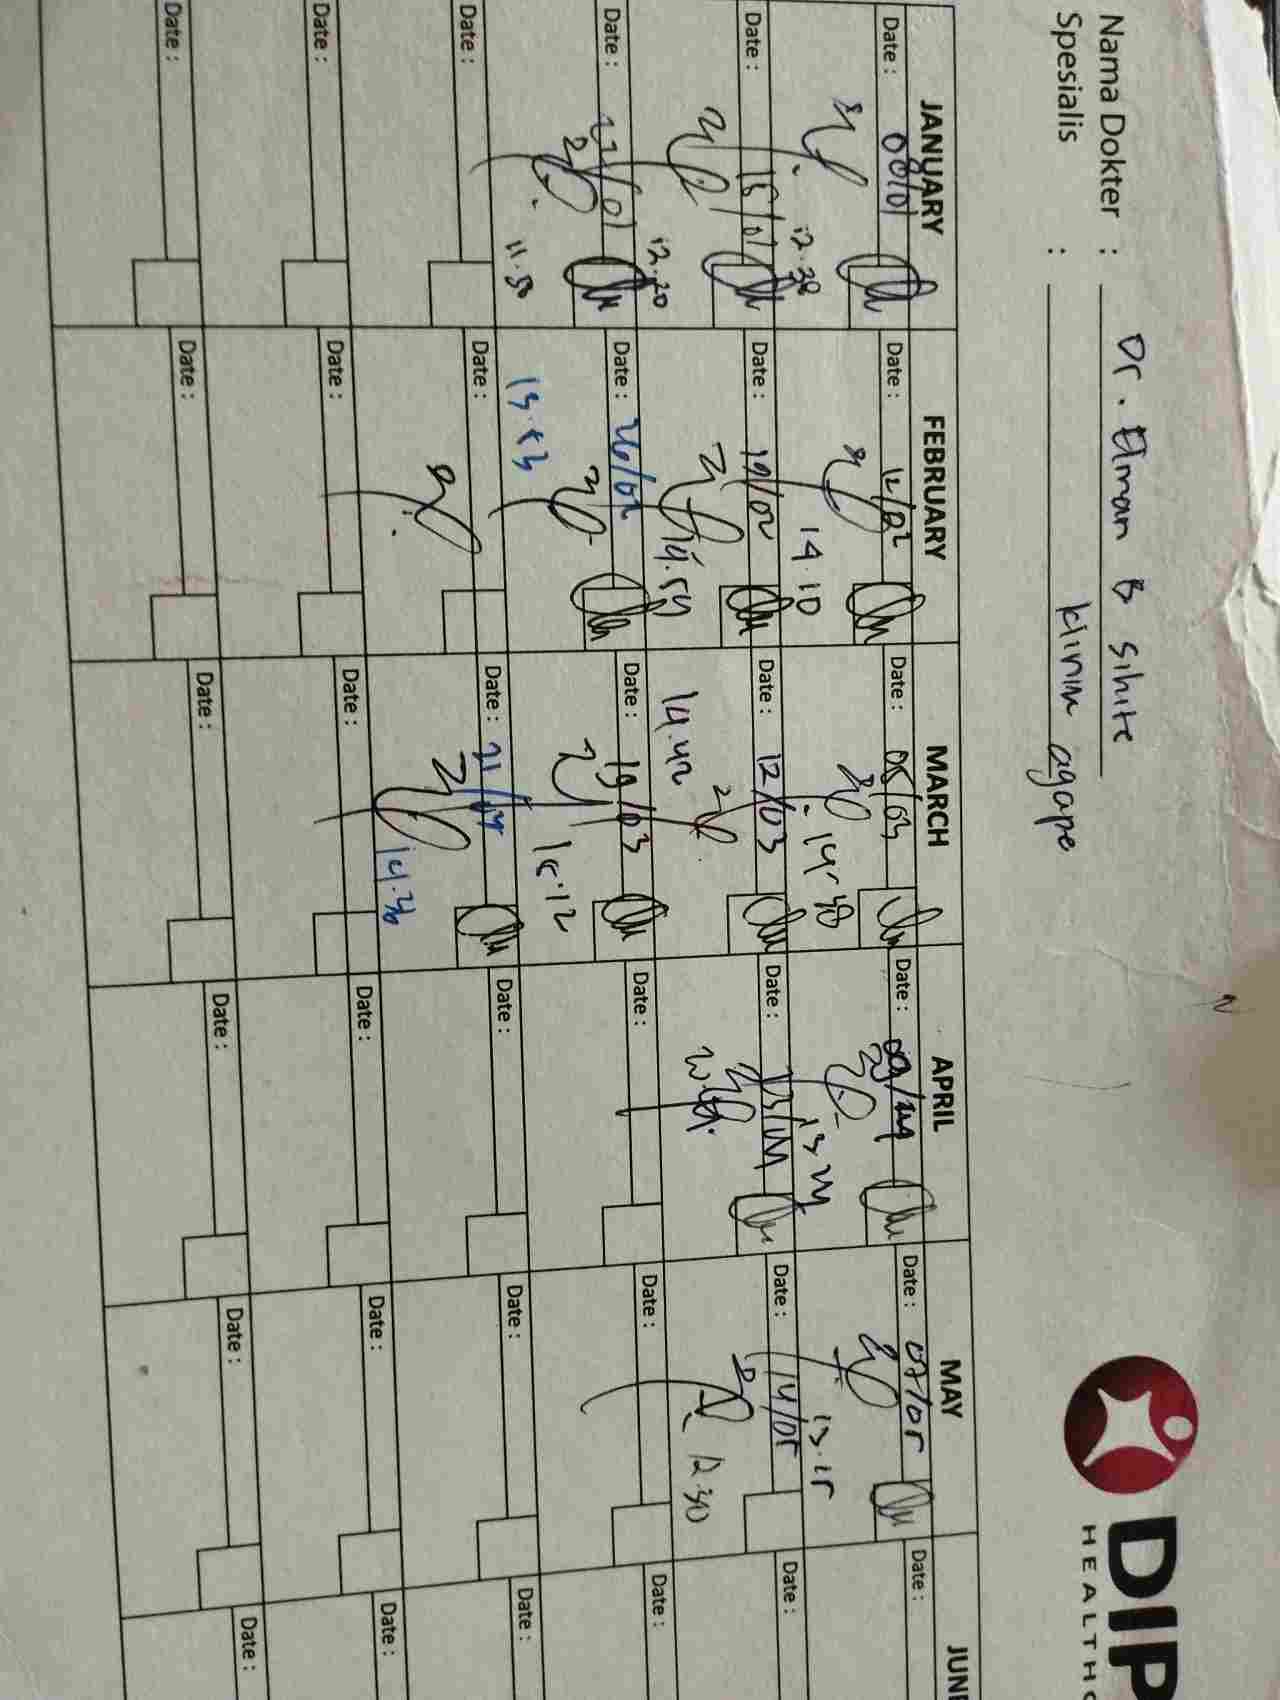 Nama Dokter : Dr. Elman B sihite
Spesialis : klinik agape
DIP
HEALTHC
JANUARY FEBRUARY MARCH APRIL MAY JUNE
Date : 08/01 Date : 12/02 Date : 05/03 Date : 09/04 Date : 07/05 Date :
12.38 14.10 14.48 13.24 13.15
Date : 15/01 Date : 19/02 Date : 12/03 Date : 23/04 Date : 14/05 Date :
12.20 14.54 14.42 12.30
Date : 22/01 Date : 26/02 Date : 19/03 Date : Date : Date :
11.50 13.53 15.12
Date : Date : Date : 21/04 Date : Date : Date :
14.36
Date : Date : Date : Date : Date : Date :
Date : Date : Date : Date : Date : Date :